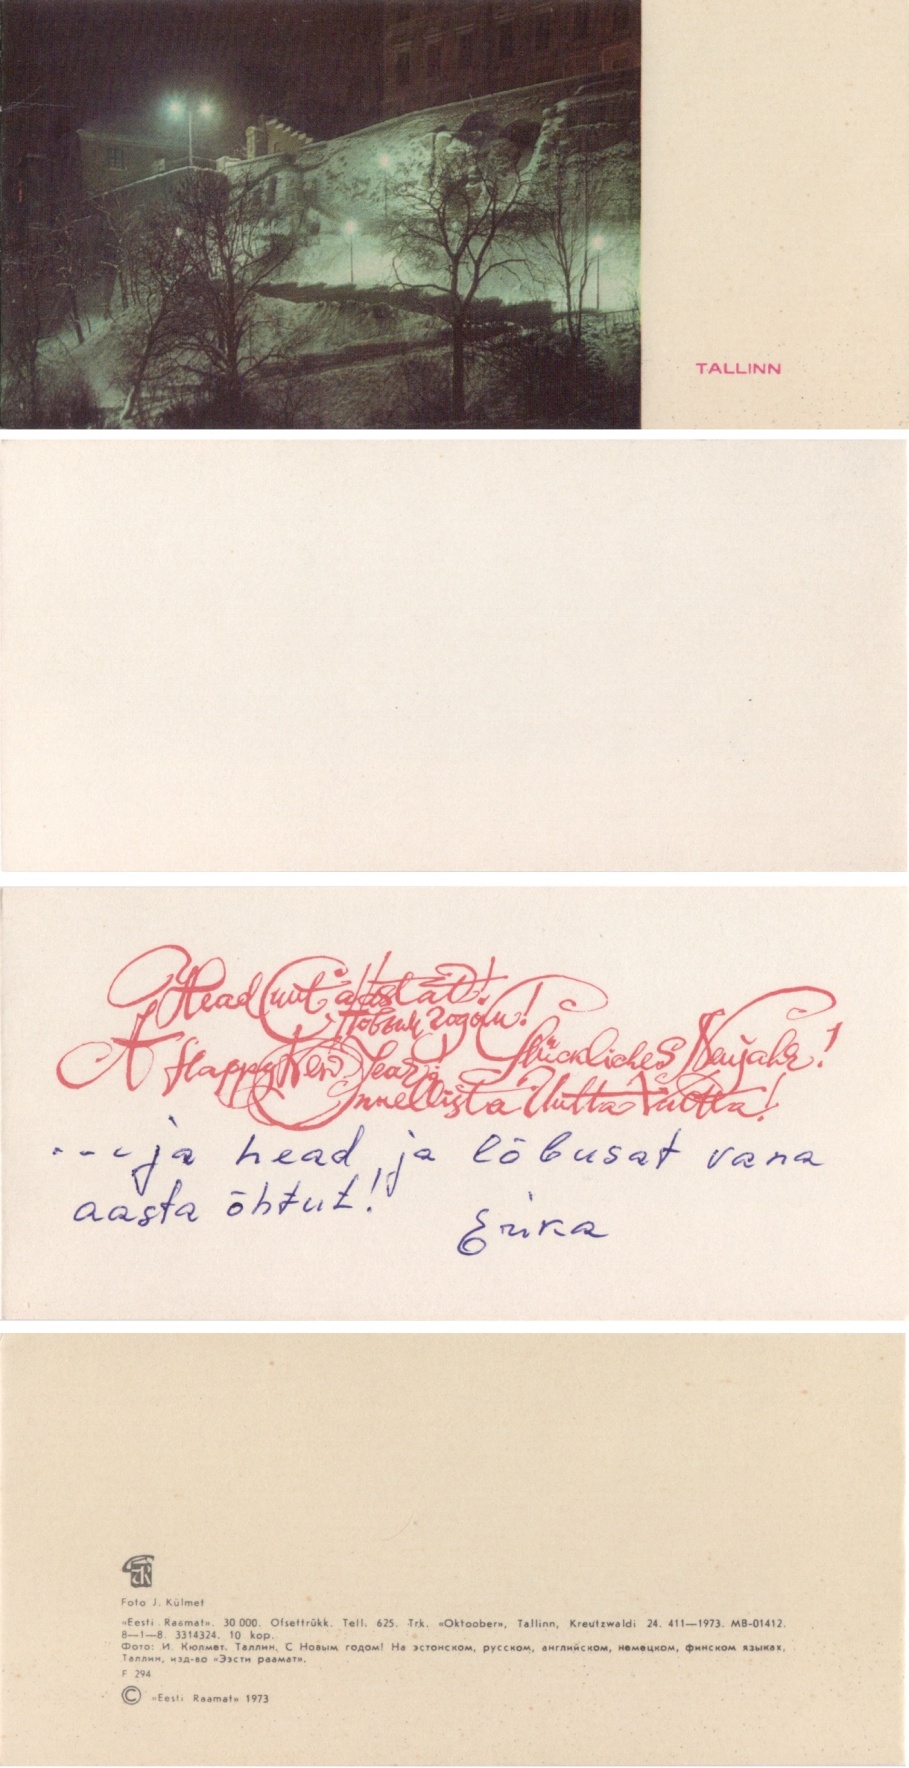 TALLINN
Head uut aastat!
С Новым годом!
A Happy New Year!
Glückliches Neujahr!
Onnellista Uutta Vuotta!
---ja head ja lõbusat vana
aasta õhtut!
Erika
Foto J. Külmet
«Eesti Raamat». 30 000. Ofsettrükk. Tell. 625. Trk. «Oktoober», Tallinn, Kreutzwaldi 24. 411—1973. MB-01412.
8—1—8. 3314324. 10 kop.
Фото: И. Кюлмет. Таллин, С Новым годом! На эстонском, русском, английском, немецком, финском языках,
Таллин, изд-во «Ээсти раамат».
F 294
© «Eesti Raamat» 1973